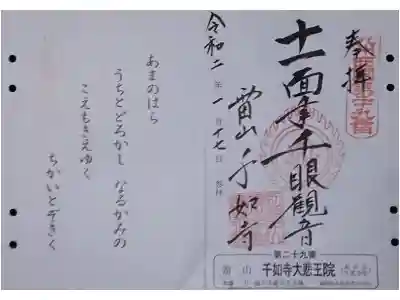 奉拝
十一面千手千眼観音
雷山千如寺
令和二年一月十七日
第二十九番
雷山 千如寺大悲王院
あまのはら
うちとどろかし なるかみの
こえもきえゆく
ちかいとぞきく